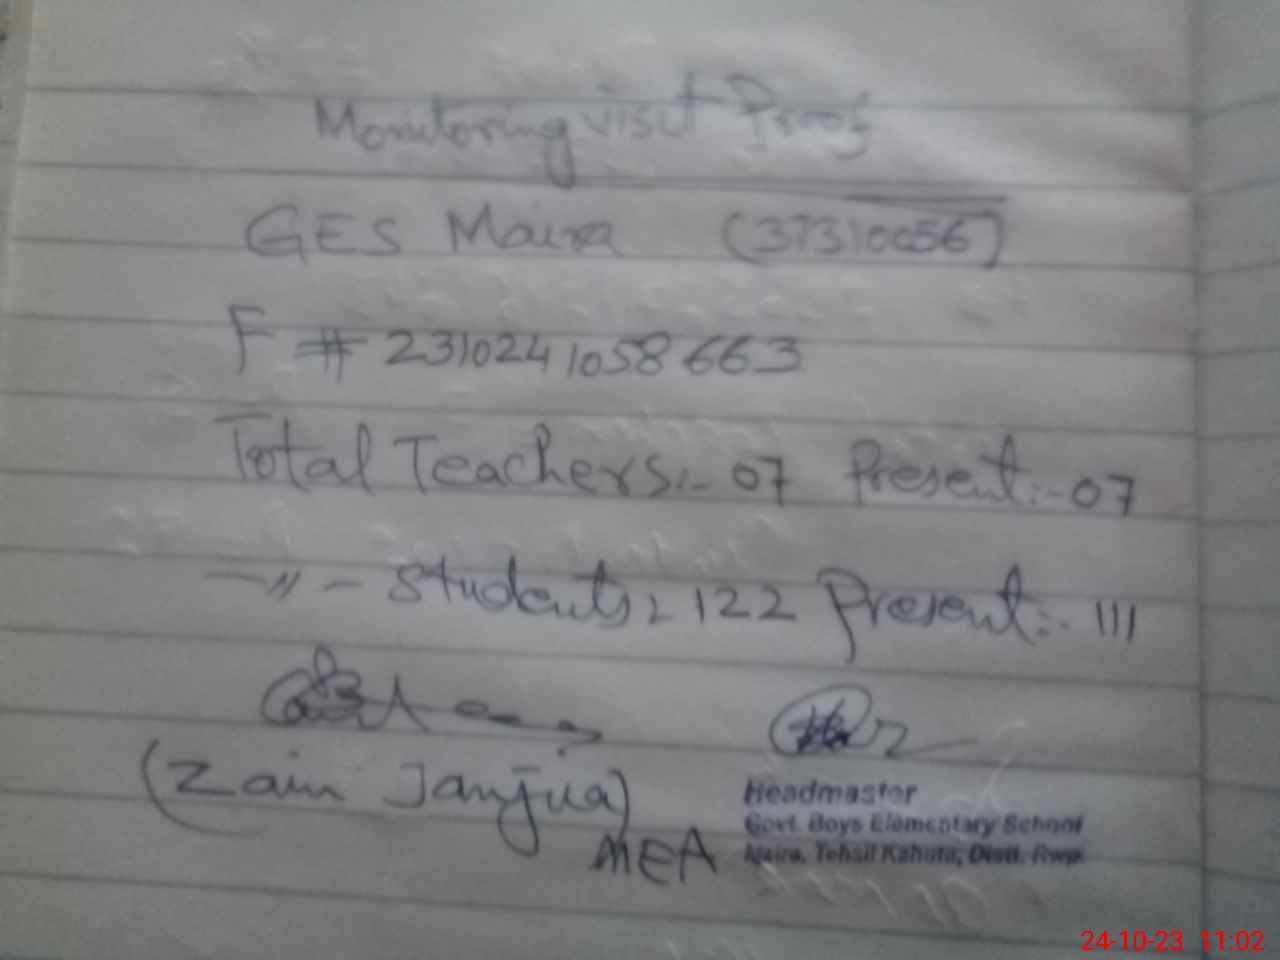 Monitoring visit Proof
GES Maira (37310056)
F # 231024 1058 663
Total Teachers:- 07 Present:- 07
—〃— Students: 122 Present:- 111
(Zain Janjua)
MEA
Headmaster
Govt. Boys Elementary School
Maira, Tehsil Kahuta, Distt. Rwp.
24-10-23 11:02